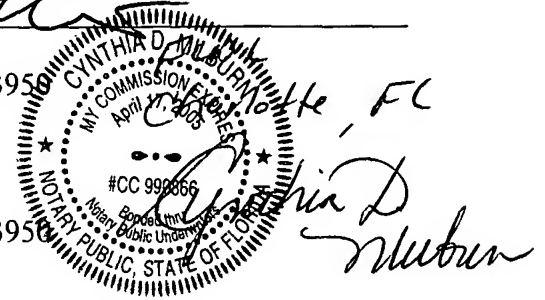 3950
CYNTHIA D. MILBURN
MY COMMISSION EXPIRES
April 17, 2005
#CC 990866
Bonded thru
Notary Public Underwriters
NOTARY PUBLIC, STATE OF FLORIDA
FL
Cynthia D
Milburn
3950